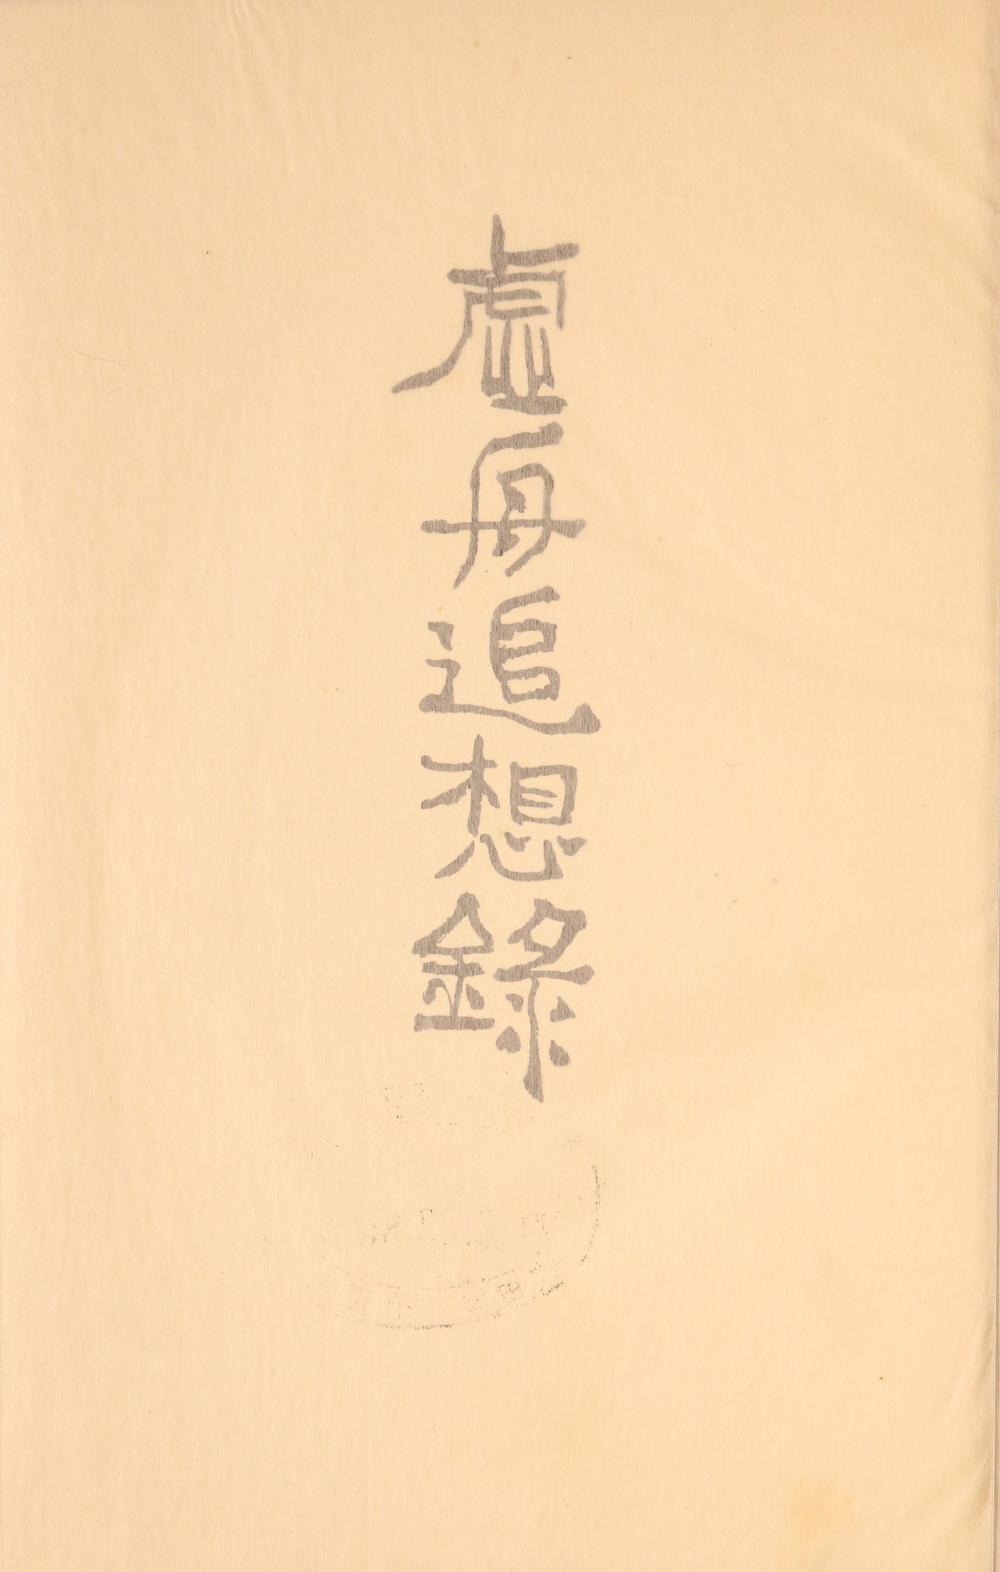 虚舟追想錄